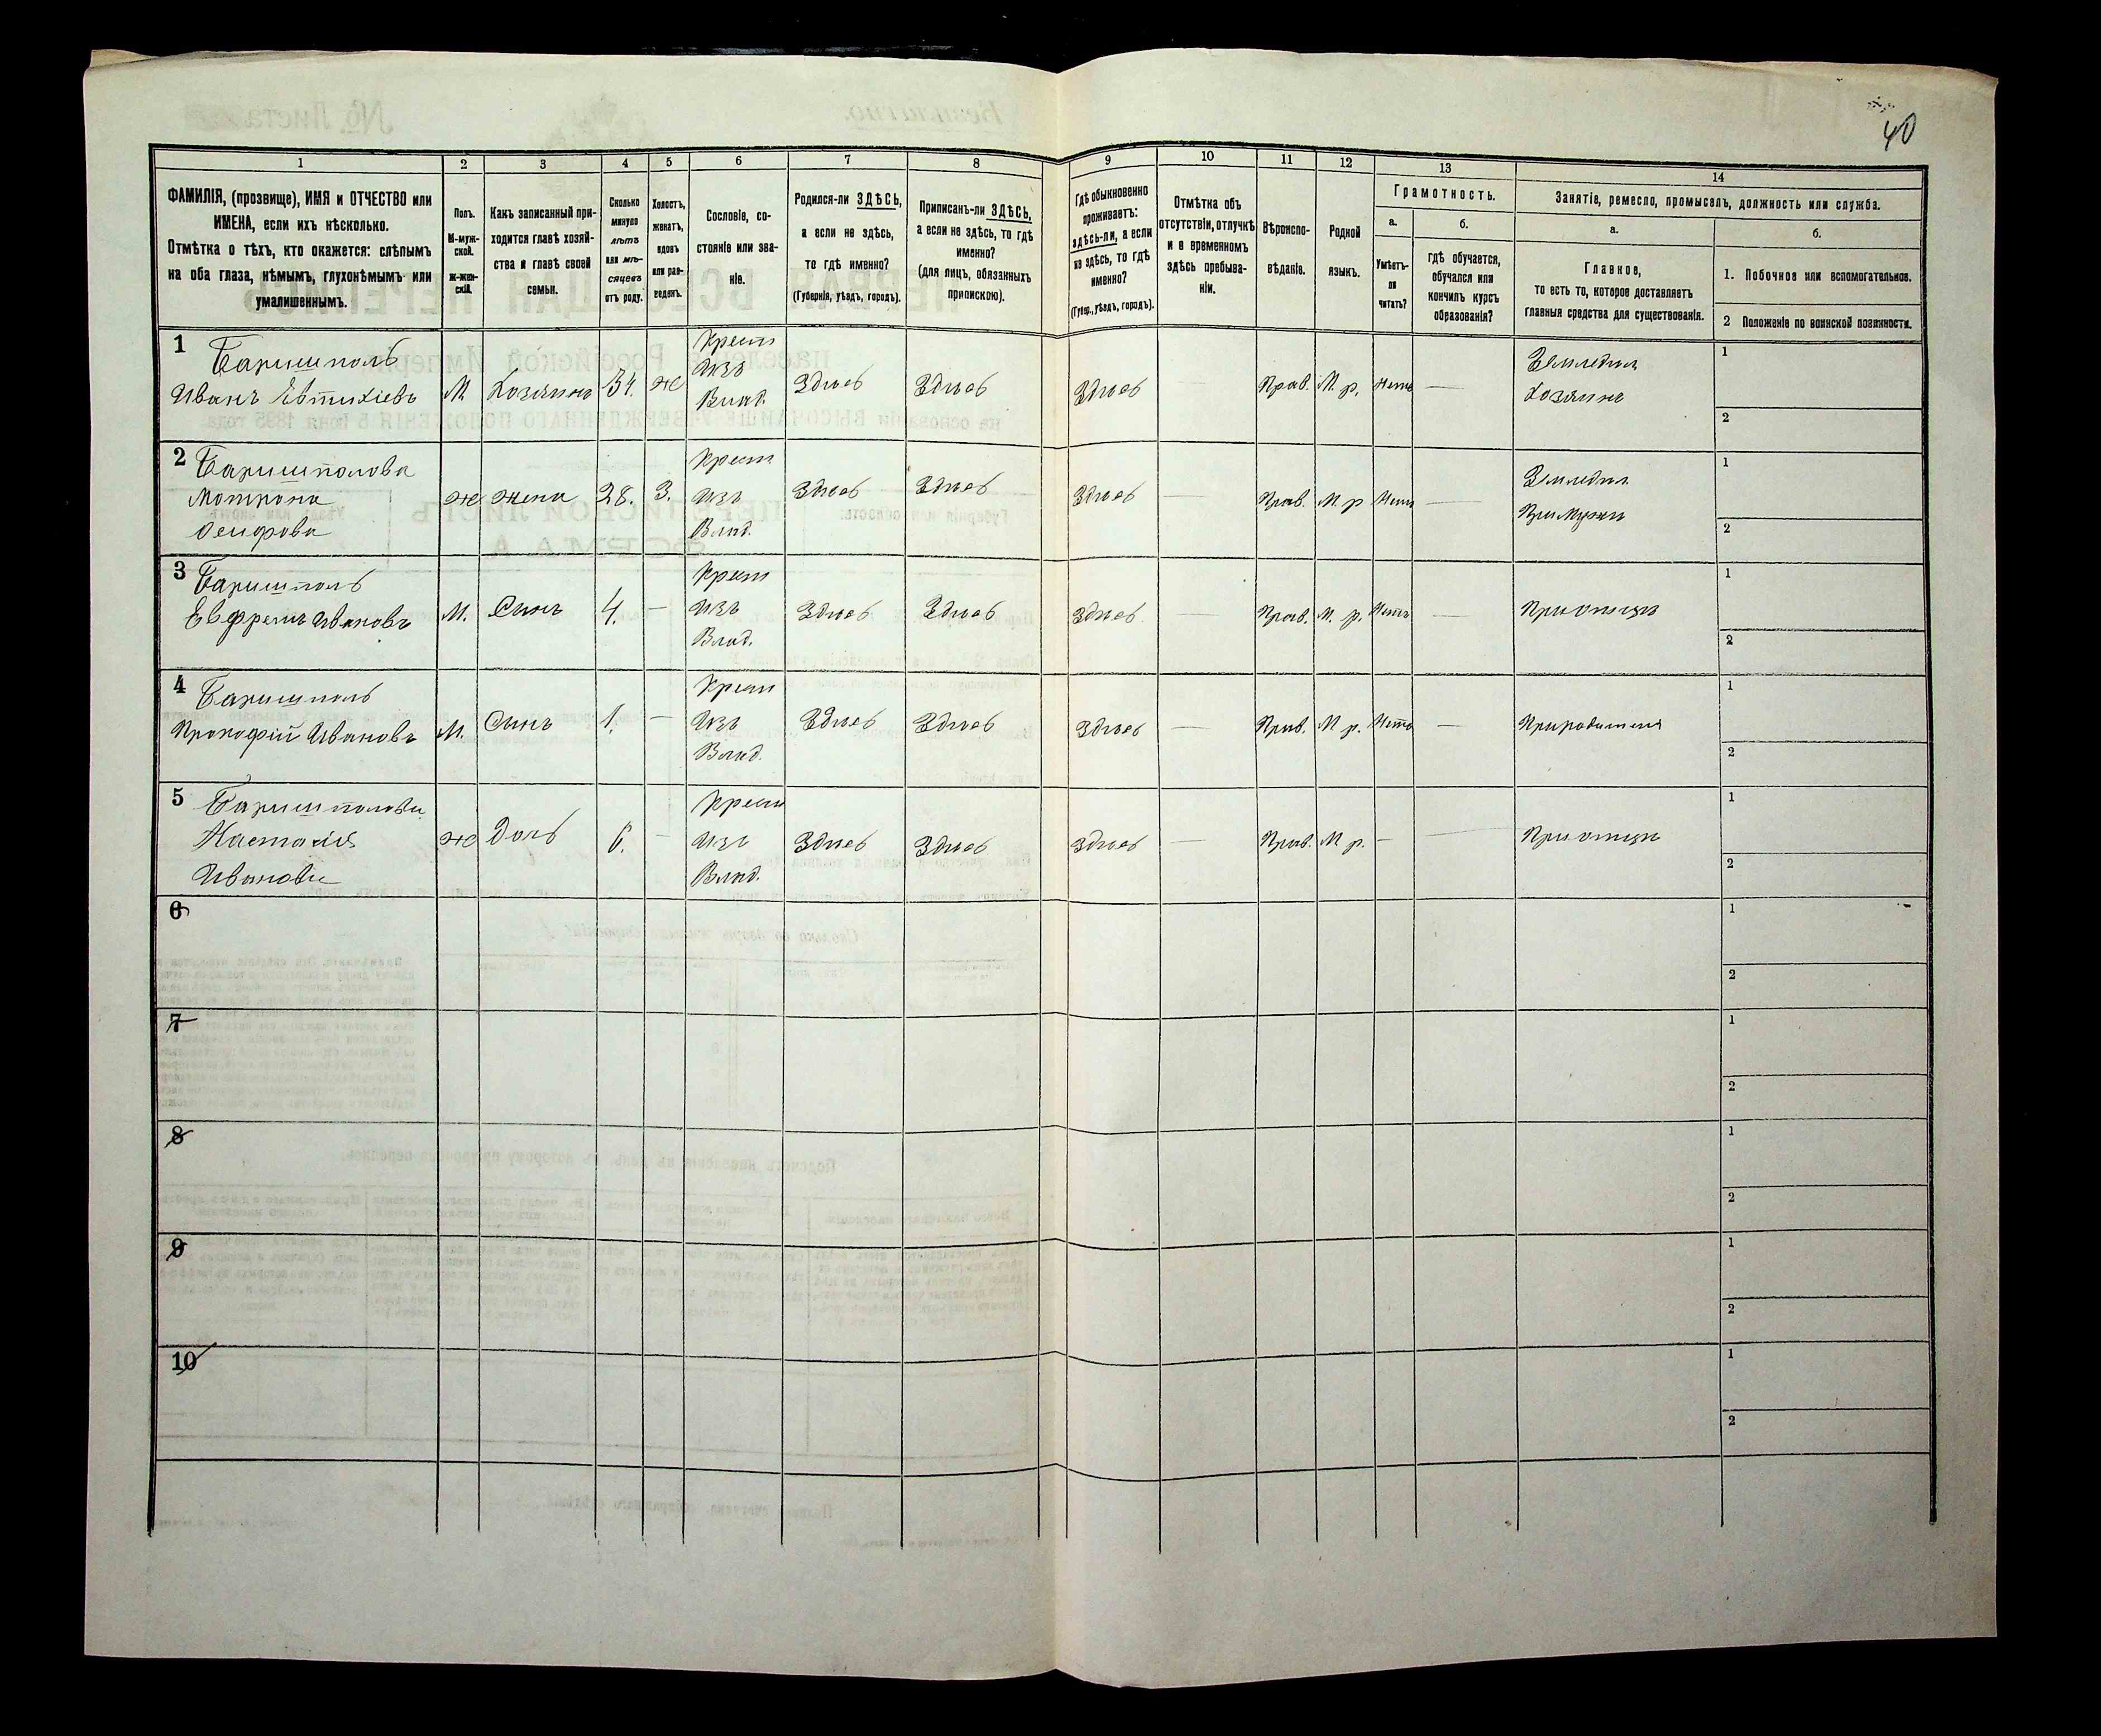 40
1 2 3 4 5 6 7 8 9 10 11 12 13 14
ФАМИЛІЯ, (прозвище), ИМЯ и ОТЧЕСТВО или
ИМЕНА, если ихъ нѣсколько.
Отмѣтка о тѣхъ, кто окажется: слѣпымъ
на оба глаза, нѣмымъ, глухонѣмымъ или
умалишеннымъ.
Полъ.
М-муж-
ской.
ж-жен-
скій.
Какъ записанный при-
ходится главѣ хозяй-
ства и главѣ своей
семьи.
Сколько
минуло
лѣтъ
или мѣ-
сяцевъ
отъ роду.
Холостъ,
женатъ,
вдовъ
или раз-
веденъ.
Сословіе, со-
стояніе или зва-
ніе.
Родился-ли ЗДѢСЬ,
а если не здѣсь,
то гдѣ именно?
(Губернія, уѣздъ, городъ).
Приписанъ-ли ЗДѢСЬ,
а если не здѣсь, то гдѣ
именно?
(для лицъ, обязанныхъ
припискою).
Гдѣ обыкновенно
проживаетъ:
здѣсь-ли, а если
не здѣсь, то гдѣ
именно?
(Губер., уѣздъ, городъ).
Отмѣтка объ
отсутствіи, отлучкѣ
и о временномъ
здѣсь пребыва-
ніи.
Вѣроиспо-
вѣданіе.
Родной
языкъ.
Грамотность.
а.
Умѣетъ-
ли
читать?
б.
гдѣ обучается,
обучался или
кончилъ курсъ
образованія?
Занятіе, ремесло, промыселъ, должность или служба.
а.
Главное,
то есть то, которое доставляетъ
главныя средства для существованія.
б.
1. Побочное или вспомогательное.
2 Положеніе по воинской повинности.
1 Баришполь Крест Земледѣл 1
Иванъ Евтихіевъ М. Хозяинъ 34. ж Изъ Здѣсь Здѣсь Здѣсь — Прав. М. р. Нетъ — Хозяинъ
Влад. 2
2 Баришполова Крест Земледѣл 1
Мотрона ж жена 28. З. Изъ Здѣсь Здѣсь Здѣсь — Прав. М. р Нетъ — При Мужи
Осифова Влад. 2
3 Баришполь Крест 1
Евфремъ Ивановъ М. Синъ 4. — Изъ Здѣсь Здѣсь Здѣсь — Прав. М. р. Нетъ — При отци
Влад. 2
4 Баришполь Крест 1
Прокофій Ивановъ М. Синъ 1. — Изъ Здѣсь Здѣсь Здѣсь — Прав. М р. Нетъ —
Влад. 2
5 Баришполова Крест 1
Настасія ж Дочь 6. — Изъ Здѣсь Здѣсь Здѣсь — Прав. М р. — — При отци
Иванова Влад. 2
6 1
2
7 1
2
8 1
2
9 1
2
10 1
2